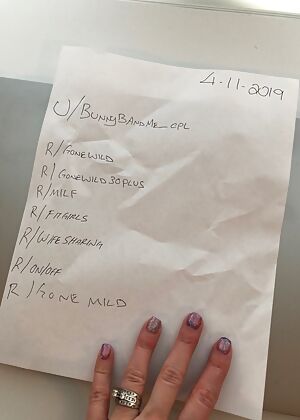 4-11-2019
U/BUNNYBANDME_CPL
R/GONEWILD
R/GONEWILD30PLUS
R/MILF
R/FITGIRLS
R/WIFESHARING
R/ON/OFF
R/GONE MILD